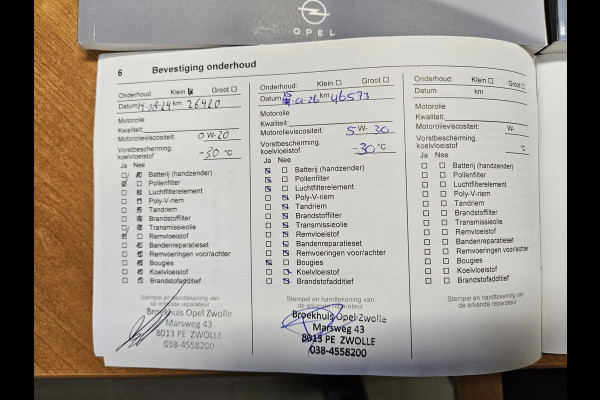 OPEL
6 Bevestiging onderhoud
Onderhoud: Klein ☒ Groot ☐
Datum 14-08-24 km 26920
Motorolie
Kwaliteit:
Motorolieviscositeit: 0 W-20
Vorstbescherming, koelvloeistof -30 °C
Ja Nee
Batterij (handzender)
Pollenfilter
Luchtfilterelement
Poly-V-riem
Tandriem
Brandstoffilter
Transmissieolie
Remvloeistof
Bandenreparatieset
Remvoeringen voor/achter
Bougies
Koelvloeistof
Brandstofadditief
Stempel en handtekening van
de erkende reparateur
Broekhuis Opel Zwolle
Marsweg 43
8013 PE ZWOLLE
038-4558200
Onderhoud: Klein ☐ Groot ☐
Datum 15-01-26 km 46573
Motorolie
Kwaliteit:
Motorolieviscositeit: 5 W- 30
Vorstbescherming, koelvloeistof -30 °C
Ja Nee
Batterij (handzender)
Pollenfilter
Luchtfilterelement
Poly-V-riem
Tandriem
Brandstoffilter
Transmissieolie
Remvloeistof
Bandenreparatieset
Remvoeringen voor/achter
Bougies
Koelvloeistof
Brandstofadditief
Stempel en handtekening van
de erkende reparateur
Broekhuis Opel Zwolle
Marsweg 43
8013 PE ZWOLLE
038-4558200
Onderhoud: Klein ☐ Groot ☐
Datum km
Motorolie
Kwaliteit:
Motorolieviscositeit: W-
Vorstbescherming, koelvloeistof °C
Ja Nee
Batterij (handzender)
Pollenfilter
Luchtfilterelement
Poly-V-riem
Tandriem
Brandstoffilter
Transmissieolie
Remvloeistof
Bandenreparatieset
Remvoeringen voor/achter
Bougies
Koelvloeistof
Brandstofadditief
Stempel en handtekening van
de erkende reparateur